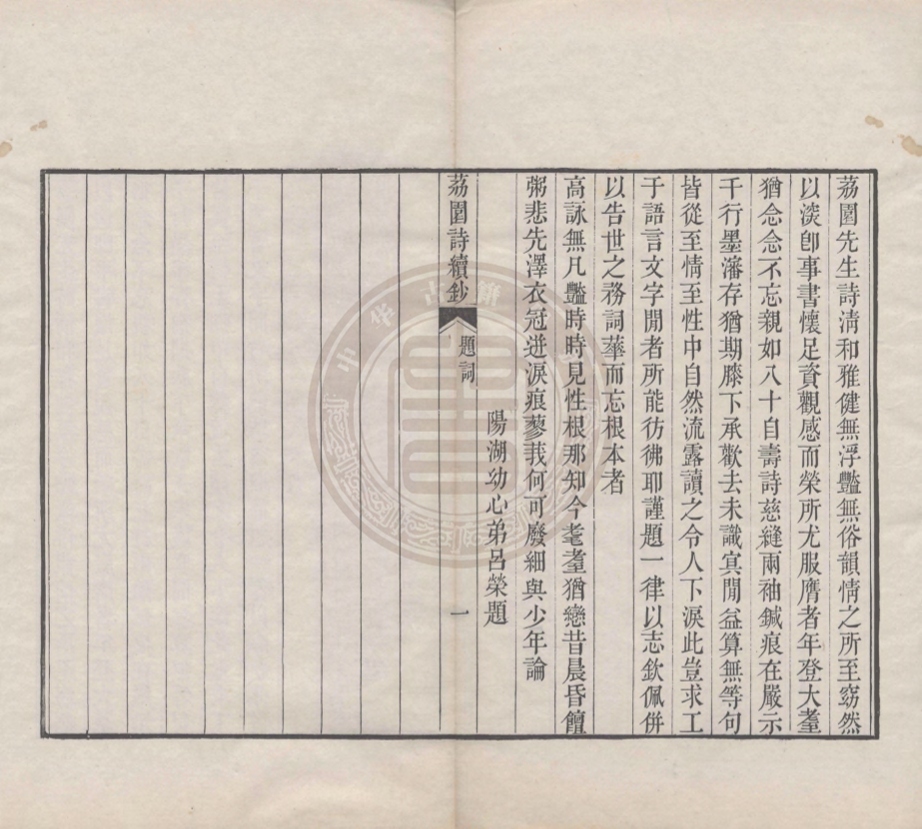 荔園先生詩淸和雅健無浮豔無俗韻情之所至窈然
以淡卽事書懷足資觀感而榮所尤服膺者年登大耋
猶念念不忘親如八十自壽詩慈縫兩袖鍼痕在嚴示
千行墨瀋存猶期膝下承歡去未識冥閒益算無等句
皆從至情至性中自然流露讀之令人下淚此豈求工
于語言文字閒者所能彷彿耶謹題一律以志欽佩併
以告世之務詞華而忘根本者
高詠無凡豔時時見性根那知今耄耋猶戀昔晨昏饘
粥悲先澤衣冠迸淚痕蓼莪何可廢細與少年論
陽湖幼心弟呂榮題
荔園詩續鈔 題詞 一